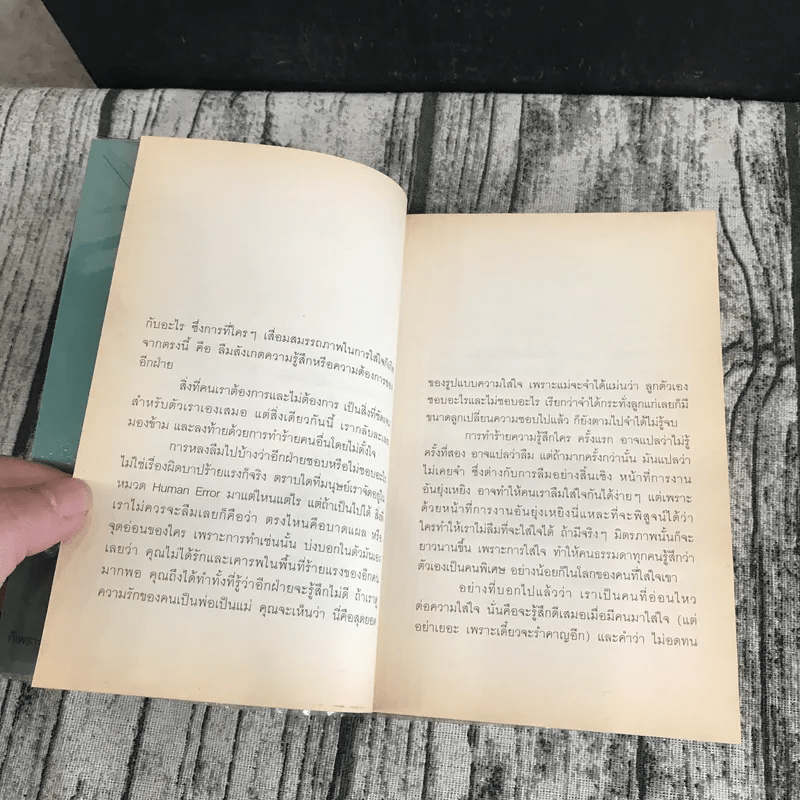 กับอะไร ซึ่งการที่ใครๆ เสื่อมสมรรถภาพในการใส่ใจ
จากตรงนี้ คือ ลืมสังเกตความรู้สึกหรือความต้องการของ
อีกฝ่าย
สิ่งที่คนเราต้องการและไม่ต้องการ เป็นสิ่งที่ชัดเจน
สำหรับตัวเราเองเสมอ แต่สิ่งเดียวกันนี้ เรากลับละเลย
มองข้าม และลงท้ายด้วยการทำร้ายคนอื่นโดยไม่ตั้งใจ
การหลงลืมไปบ้างว่าอีกฝ่ายชอบหรือไม่ชอบอะไร
ไม่ใช่เรื่องผิดบาปร้ายแรงก็จริง ตราบใดที่มนุษย์เราจัดอยู่ใน
หมวด Human Error มาแต่ไหนแต่ไร แต่ถ้าเป็นไปได้ สิ่งที่
เราไม่ควรจะลืมเลยก็คือว่า ตรงไหนคือบาดแผล หรือ
จุดอ่อนของใคร เพราะการทำเช่นนั้น บ่งบอกในตัวมันเอง
เลยว่า คุณไม่ได้รักและเคารพในพื้นที่ร้ายแรงของอีกคน
มากพอ คุณถึงได้ทำทั้งที่รู้ว่าอีกฝ่ายจะรู้สึกไม่ดี ถ้าเราดู
ความรักของคนเป็นพ่อเป็นแม่ คุณจะเห็นว่า นี่คือสุดยอด
ก็เพราะ
ของรูปแบบความใส่ใจ เพราะแม่จะจำได้แม่นว่า ลูกตัวเอง
ชอบอะไรและไม่ชอบอะไร เรียกว่าจำได้กระทั่งลูกแก่เลยก็มี
ขนาดลูกเปลี่ยนความชอบไปแล้ว ก็ยังตามไปจำได้ไม่รู้จบ
การทำร้ายความรู้สึกใคร ครั้งแรก อาจแปลว่าไม่รู้
ครั้งที่สอง อาจแปลว่าลืม แต่ถ้ามากครั้งกว่านั้น มันแปลว่า
ไม่เคยจำ ซึ่งต่างกับการลืมอย่างสิ้นเชิง หน้าที่การงาน
อันยุ่งเหยิง อาจทำให้คนเราลืมใส่ใจกันได้ง่ายๆ แต่เพราะ
ด้วยหน้าที่การงานอันยุ่งเหยิงนี่แหละที่จะพิสูจน์ได้ว่า
ใครทำให้เราไม่ลืมที่จะใส่ใจได้ ถ้ามีจริงๆ มิตรภาพนั้นก็จะ
ยาวนานขึ้น เพราะการใส่ใจ ทำให้คนธรรมดาทุกคนรู้สึกว่า
ตัวเองเป็นคนพิเศษ อย่างน้อยก็ในโลกของคนที่ใส่ใจเขา
อย่างที่บอกไปแล้วว่า เราเป็นคนที่อ่อนไหว
ต่อความใส่ใจ นั่นคือจะรู้สึกดีเสมอเมื่อมีคนมาใส่ใจ (แต่
อย่าเยอะ เพราะเดี๋ยวจะรำคาญอีก) และคำว่า ไม่อดทน